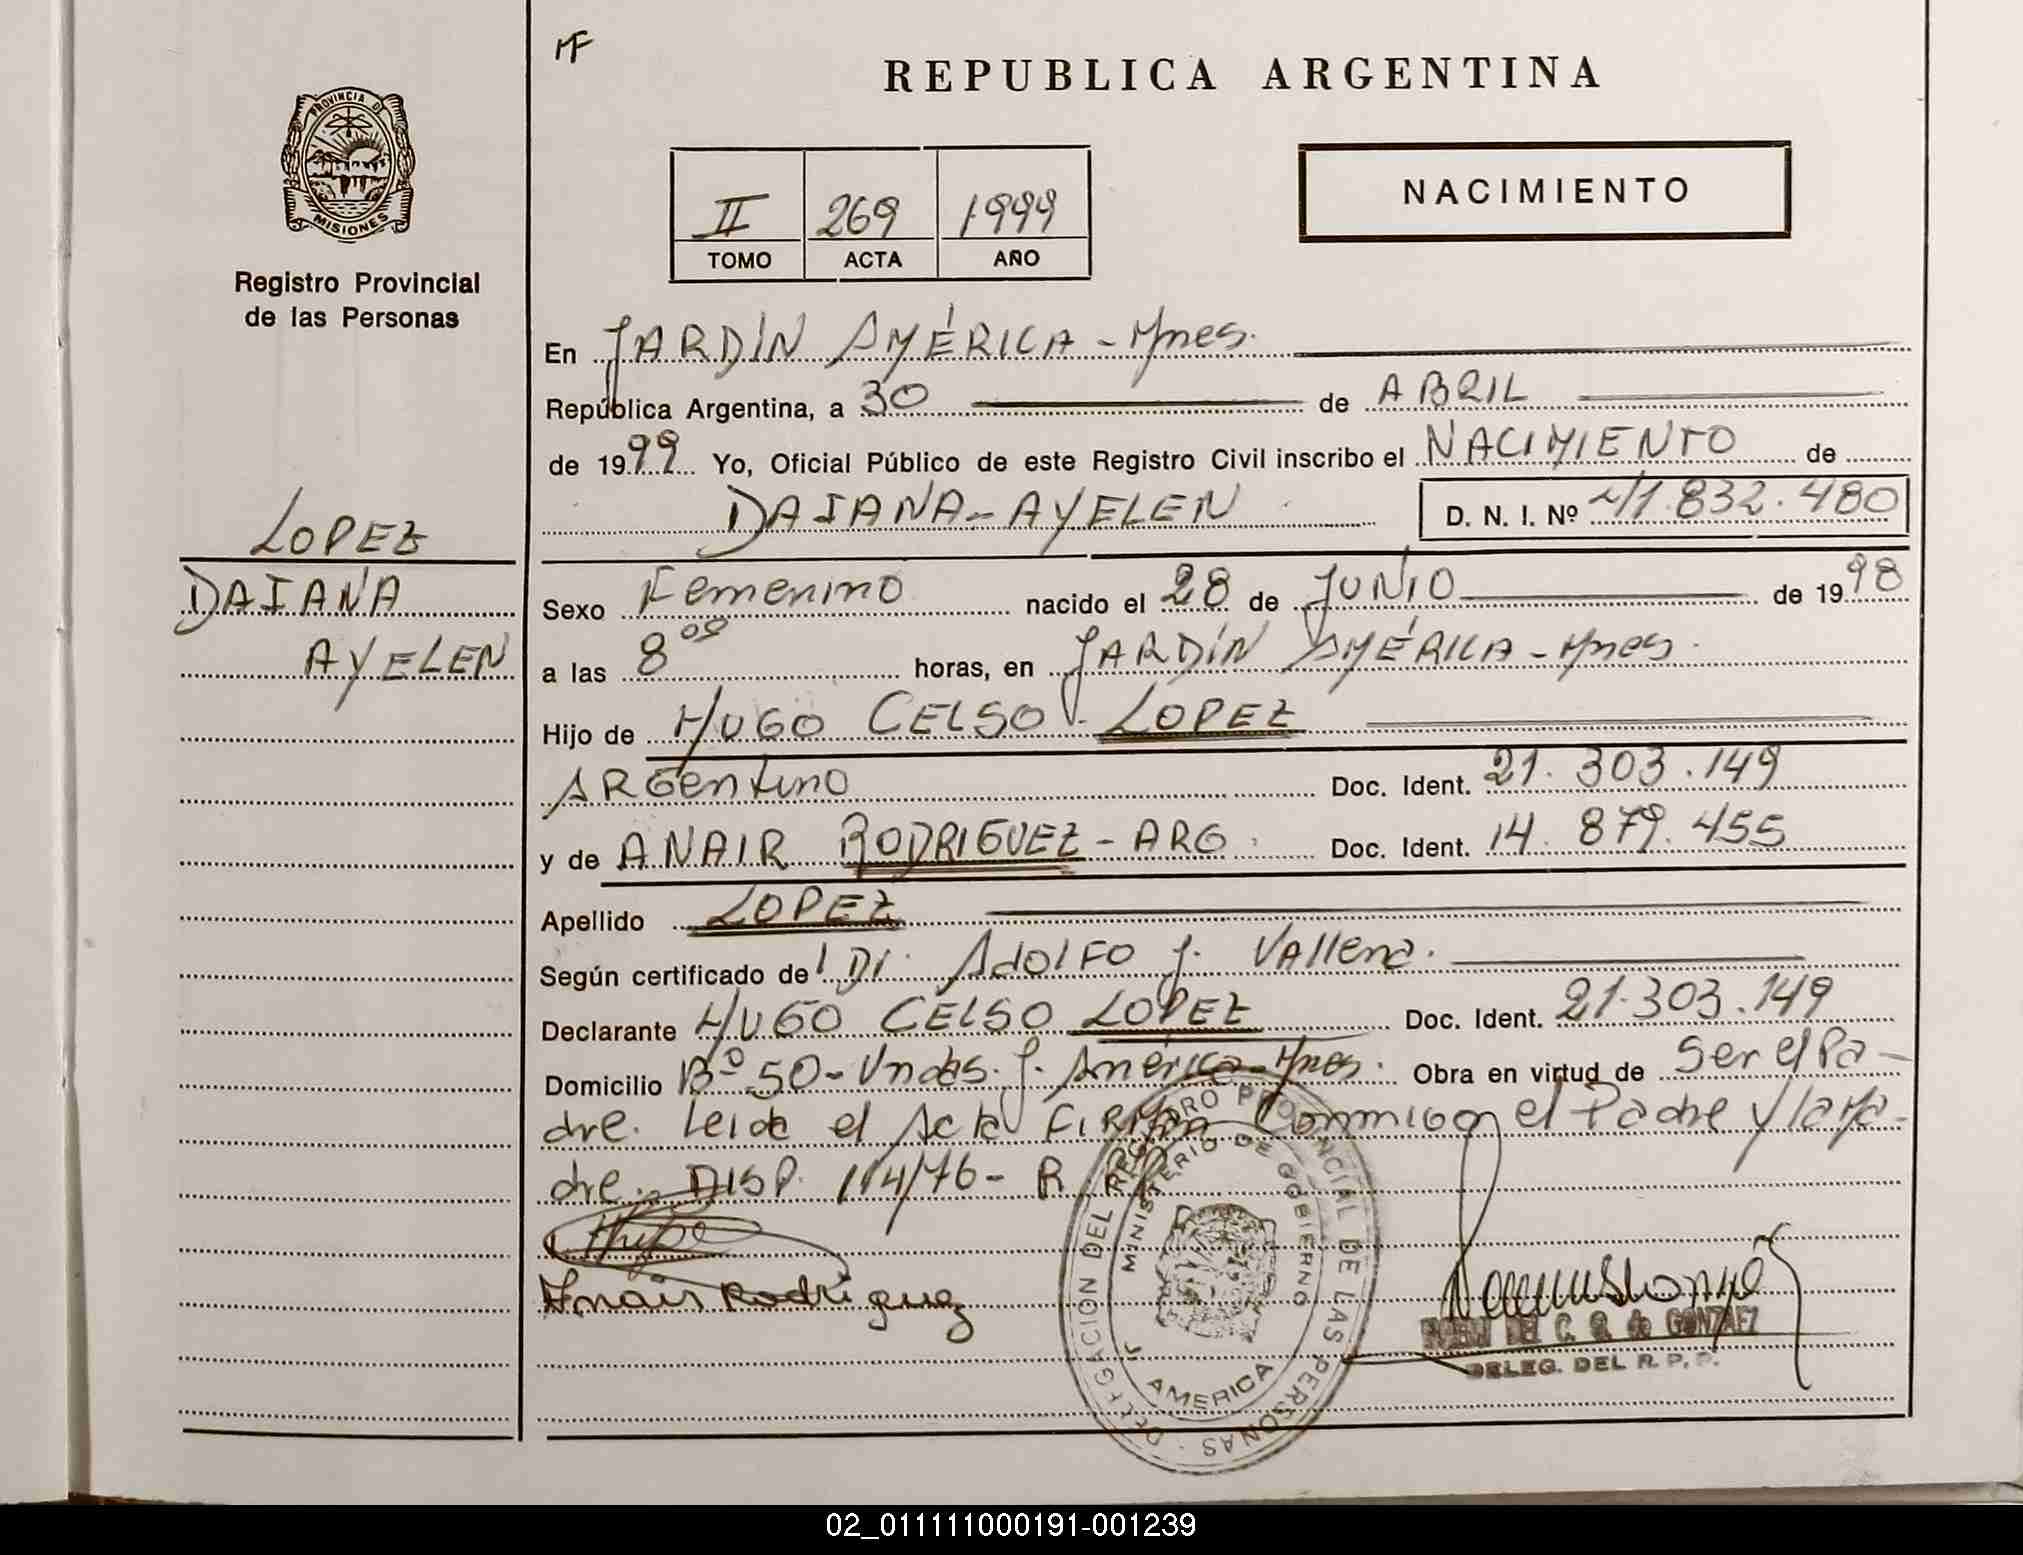 MF
REPUBLICA ARGENTINA
PROVINCIA DE
MISIONES
II 269 1999
TOMO ACTA AÑO
NACIMIENTO
Registro Provincial
de las Personas
En JARDÍN AMÉRICA - Mnes.
República Argentina, a 30 de ABRIL
de 1999 Yo, Oficial Público de este Registro Civil inscribo el NACIMIENTO de
DAIANA - AYELEN D. N. I. Nº 41.832.480
LOPEZ
DAIANA
AYELEN
Sexo Femenino nacido el 28 de JUNIO de 1998
a las 8 00 horas, en JARDÍN AMÉRICA - Mnes.
Hijo de HUGO CELSO LOPEZ
ARGentino Doc. Ident. 21.303.149
y de ANAIR RODRIGUEZ - ARG. Doc. Ident. 14.879.455
Apellido LOPEZ
Según certificado de Dr. ADOLFO J. VALLEna.
Declarante HUGO CELSO LOPEZ Doc. Ident. 21.303.149
Domicilio Bº 50 - Vndas. J. América - Mnes. Obra en virtud de Ser el Pa-
dre. Leida el Acta FIRMAn Conmigo el Padre y la Ma-
dre. DISP. 114/76 - R.
Anair Rodriguez
DELEGACION DEL REGISTRO PROVINCIAL DE LAS PERSONAS
MINISTERIO DE GOBIERNO
AMERICA
DEL C. de GONZALEZ
DELEG. DEL R. P. P.
02_011111000191-001239